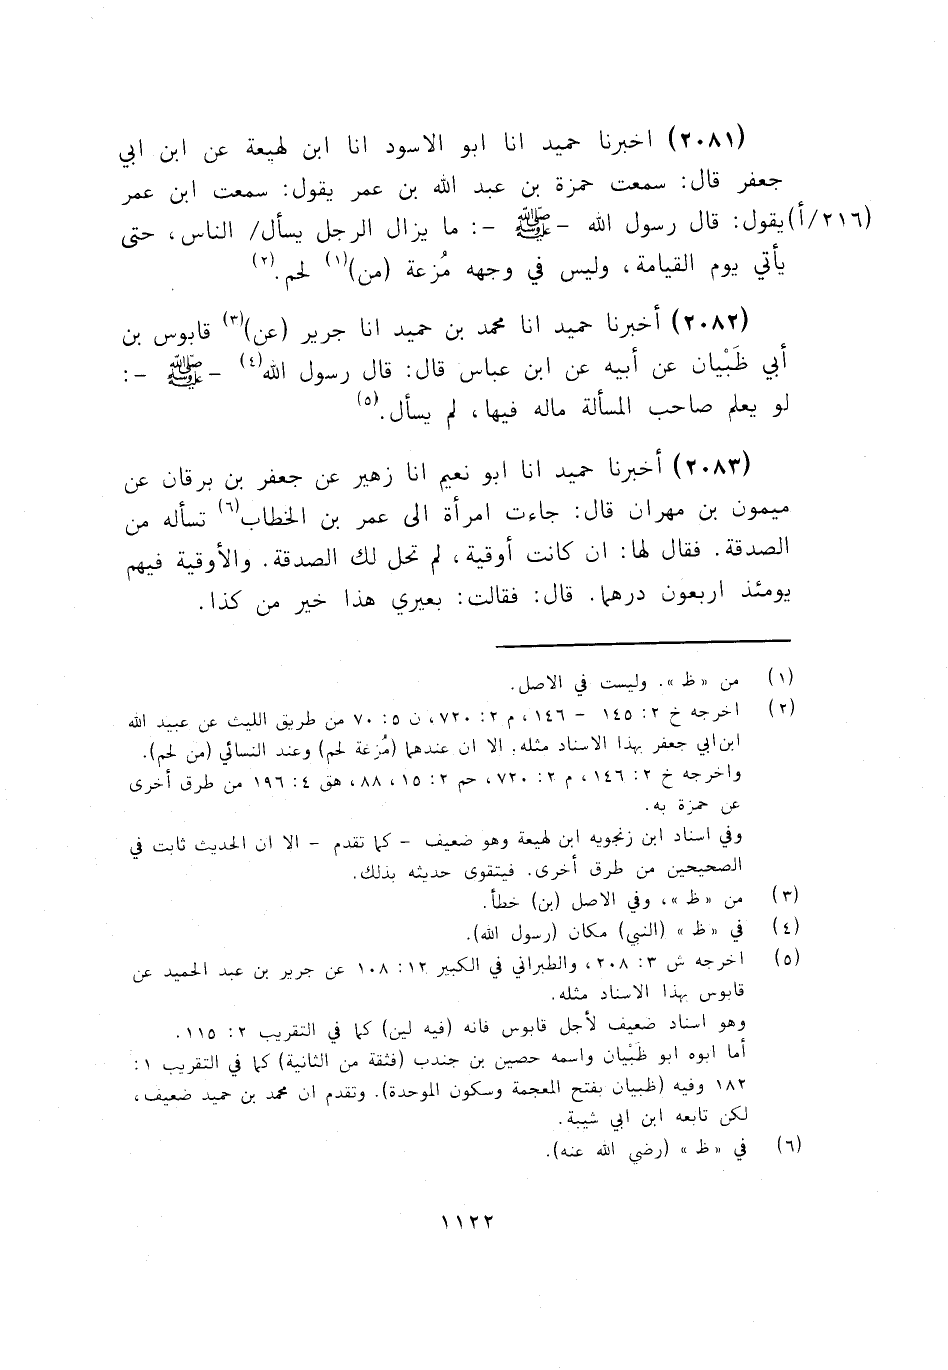 (٢٠٨١) اخبرنا حميد انا ابو الاسود انا ابن لهيعة عن ابن ابي
جعفر قال: سمعت حمزة بن عبد الله بن عمر يقول: سمعت ابن عمر
(٢١٦/أ) يقول: قال رسول الله - ﷺ -: ما يزال الرجل يسأل/ الناس، حتى
يأتي يوم القيامة، وليس في وجهه مُزعة (من)(١) لحم.(٢)
(٢٠٨٢) أخبرنا حميد انا محمد بن حميد انا جرير (عن)(٣) قابوس بن
أبي ظَبْيان عن أبيه عن ابن عباس قال: قال رسول الله(٤) - ﷺ -:
لو يعلم صاحب المسألة ماله فيها، لم يسأل.(٥)
(٢٠٨٣) أخبرنا حميد انا ابو نعيم انا زهير عن جعفر بن برقان عن
ميمون بن مهران قال: جاءت امرأة الى عمر بن الخطاب(٦) تسأله من
الصدقة. فقال لها: ان كانت أوقية، لم تحل لك الصدقة. والأوقية فيهم
يومئذ اربعون درهما. قال: فقالت: بعيري هذا خير من كذا.
(١) من «ظ». وليست في الاصل.
(٢) اخرجه خ ٢: ١٤٥ - ١٤٦، م ٢: ٧٢٠، ن ٥: ٧٠ من طريق الليث عن عبيد الله
ابن ابي جعفر بهذا الاسناد مثله. الا ان عندهما (مُزعة لحم) وعند النسائي (من لحم).
واخرجه خ ٢: ١٤٦، م ٢: ٧٢٠، حم ٢: ١٥، ٨٨، هق ٤: ١٩٦ من طرق أخرى
عن حمزة به.
وفي اسناد ابن زنجويه ابن لهيعة وهو ضعيف - كما تقدم - الا ان الحديث ثابت في
الصحيحين من طرق أخرى. فيتقوى حديثه بذلك.
(٣) من «ظ»، وفي الاصل (بن) خطأ.
(٤) في «ظ» (النبي) مكان (رسول الله).
(٥) اخرجه ش ٣: ٢٠٨، والطبراني في الكبير ١٢: ١٠٨ عن جرير بن عبد الحميد عن
قابوس بهذا الاسناد مثله.
وهو اسناد ضعيف لأجل قابوس فانه (فيه لين) كما في التقريب ٢: ١١٥.
أما ابوه ابو ظَبْيان واسمه حصين بن جندب (فثقة من الثانية) كما في التقريب ١:
١٨٢ وفيه (ظبيان بفتح المعجمة وسكون الموحدة). وتقدم ان محمد بن حميد ضعيف،
لكن تابعه ابن ابي شيبة.
(٦) في «ظ» (رضي الله عنه).
١١٢٢